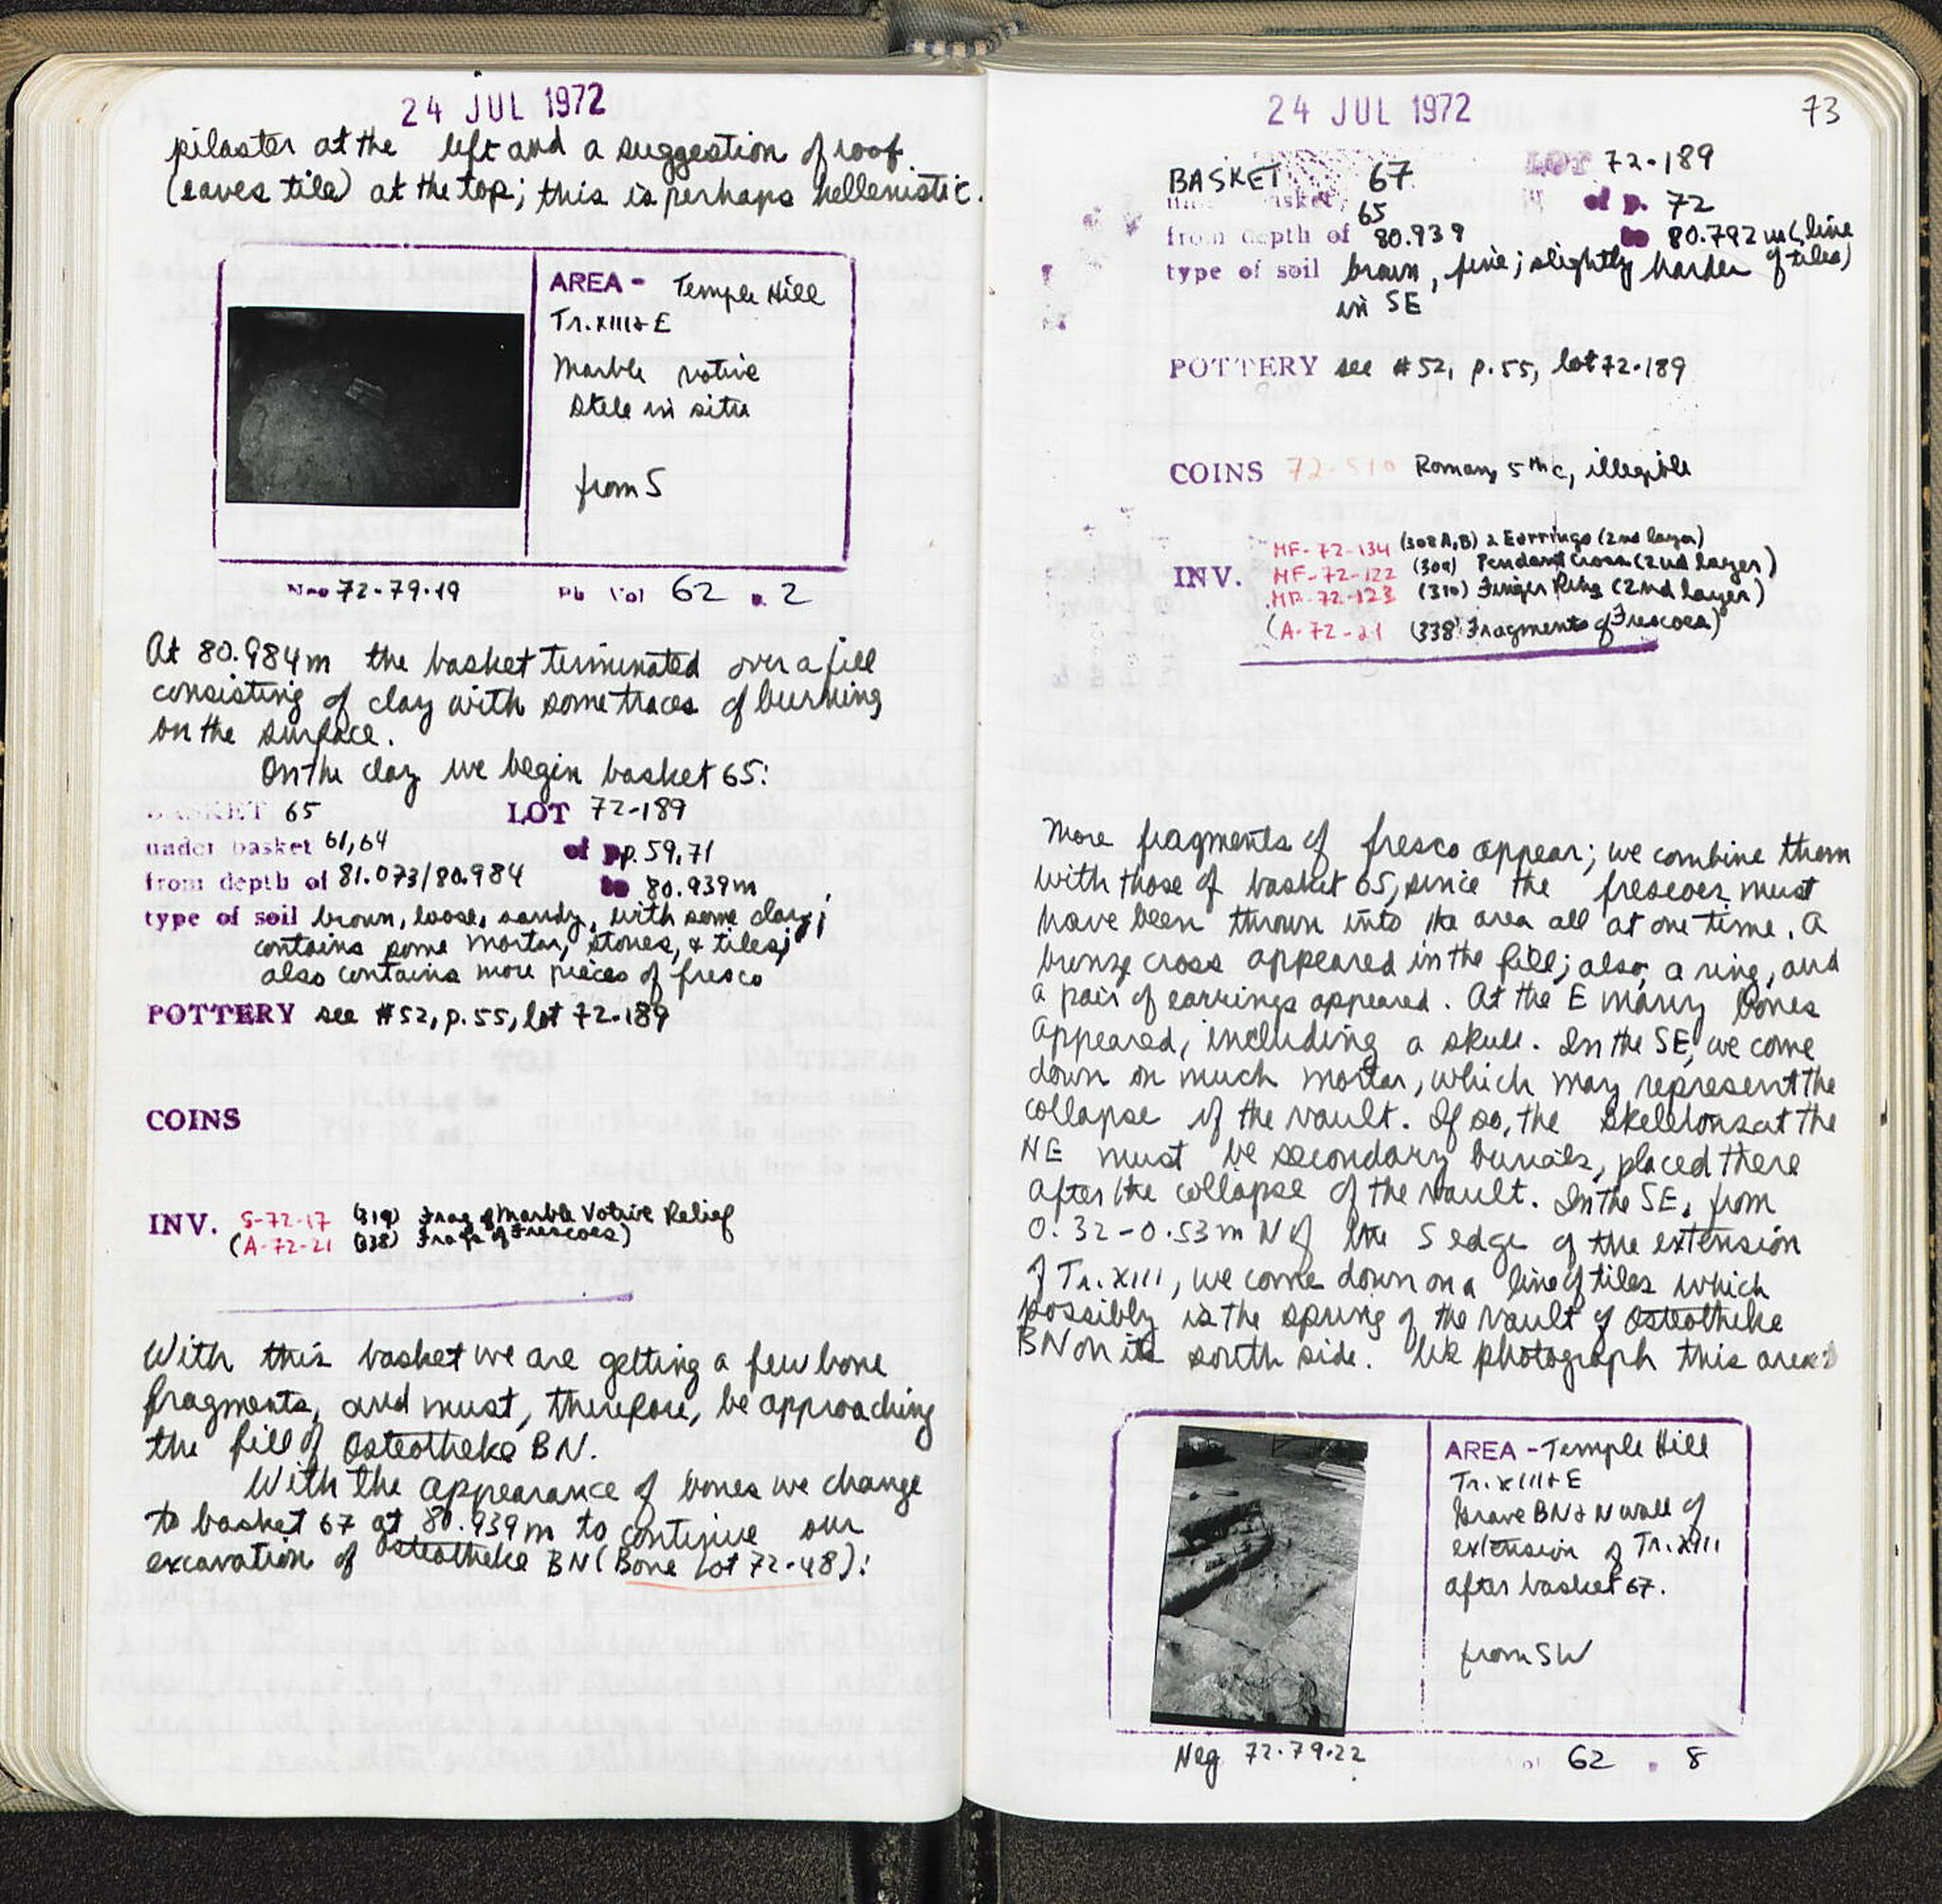 24 JUL 1972
pilaster at the left and a suggestion of roof
(eaves tile) at the top; this is perhaps hellenistic.
AREA - Temple Hill
Tr. XIII+E
Marble votive
Stele in situ
from S
72-79-19 Vol 62 . 2
At 80.984m the basket terminated over a fill
consisting of clay with some traces of burning
on the surface.
On the clay we begin basket 65:
BASKET 65 LOT 72-189
under basket 61,64 of pp. 59,71
from depth of 81.073/80.984 to 80.939m
type of soil brown, loose, sandy, with some clay;
contains some mortar, stones, & tiles;
also contains more pieces of fresco
POTTERY see #52, p.55, lot 72-189
COINS
INV. S-72-17 (319) Frag of Marble Votive Relief
(A-72-21 (338) Frags of Frescoes)
With this basket we are getting a few bone
fragments, and must, therefore, be approaching
the fill of Osteotheke BN.
With the appearance of bones we change
to basket 67 at 80.939m to continue our
excavation of Osteotheke BN (Bone Lot 72-48):
24 JUL 1972 73
BASKET 67 LOT 72-189
under basket 65 of p. 72
from depth of 80.939 to 80.792m (line
type of soil brown, fine; slightly harder of tiles)
in SE
POTTERY see #52, p.55, lot 72-189
COINS 72-510 Roman, 5th c, illegible
MF-72-134 (308 A,B) 2 Earrings (2nd layer)
INV. MF-72-122 (309) Pendant Cross (2nd layer)
MF-72-123 (310) Finger Ring (2nd layer)
(A-72-21 (338) Fragments of Frescoes)
More fragments of fresco appear; we combine them
with those of basket 65, since the frescoes must
have been thrown into the area all at one time. A
bronze cross appeared in the fill; also, a ring, and
a pair of earrings appeared. At the E many bones
appeared, including a skull. In the SE, we come
down on much mortar, which may represent the
collapse of the vault. If so, the skeletons at the
NE must be secondary burials, placed there
after the collapse of the vault. In the SE, from
0.32-0.53m N of the S edge of the extension
of Tr. XIII, we come down on a line of tiles which
possibly is the spring of the vault of Osteotheke
BN on its south side. We photograph this area:
AREA - Temple Hill
Tr. XIII+E
Grave BN + N wall of
extension of Tr. XIII
after basket 67.
from SW
Neg 72-79-22 62 . 8